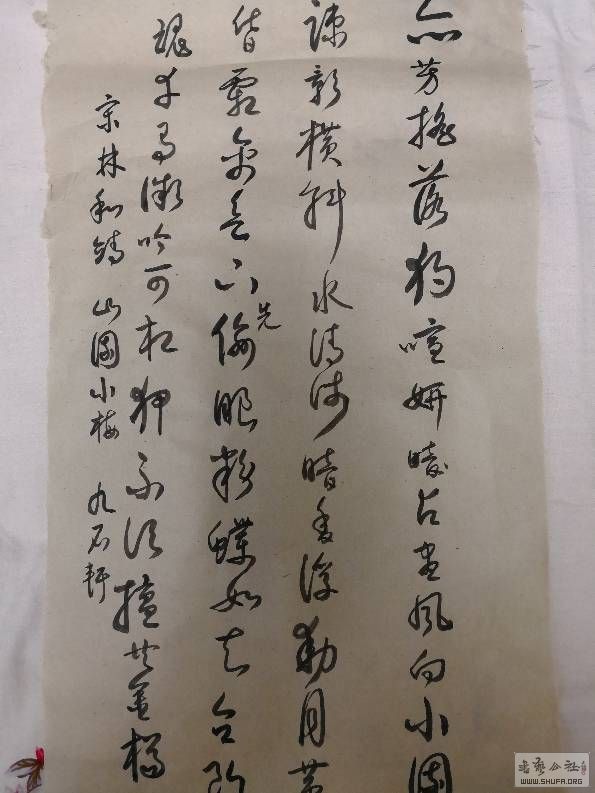 众芳搖落獨喧妍占尽風向小園
疎影橫斜水清浅暗香浮動月黄
昏霜禽欲下先偷眼粉蝶如知合断
魂幸有微吟可相狎不須檀共金樽
宋林和靖 山園小梅 九石軒
书法公社
WWW.SHUFA.ORG